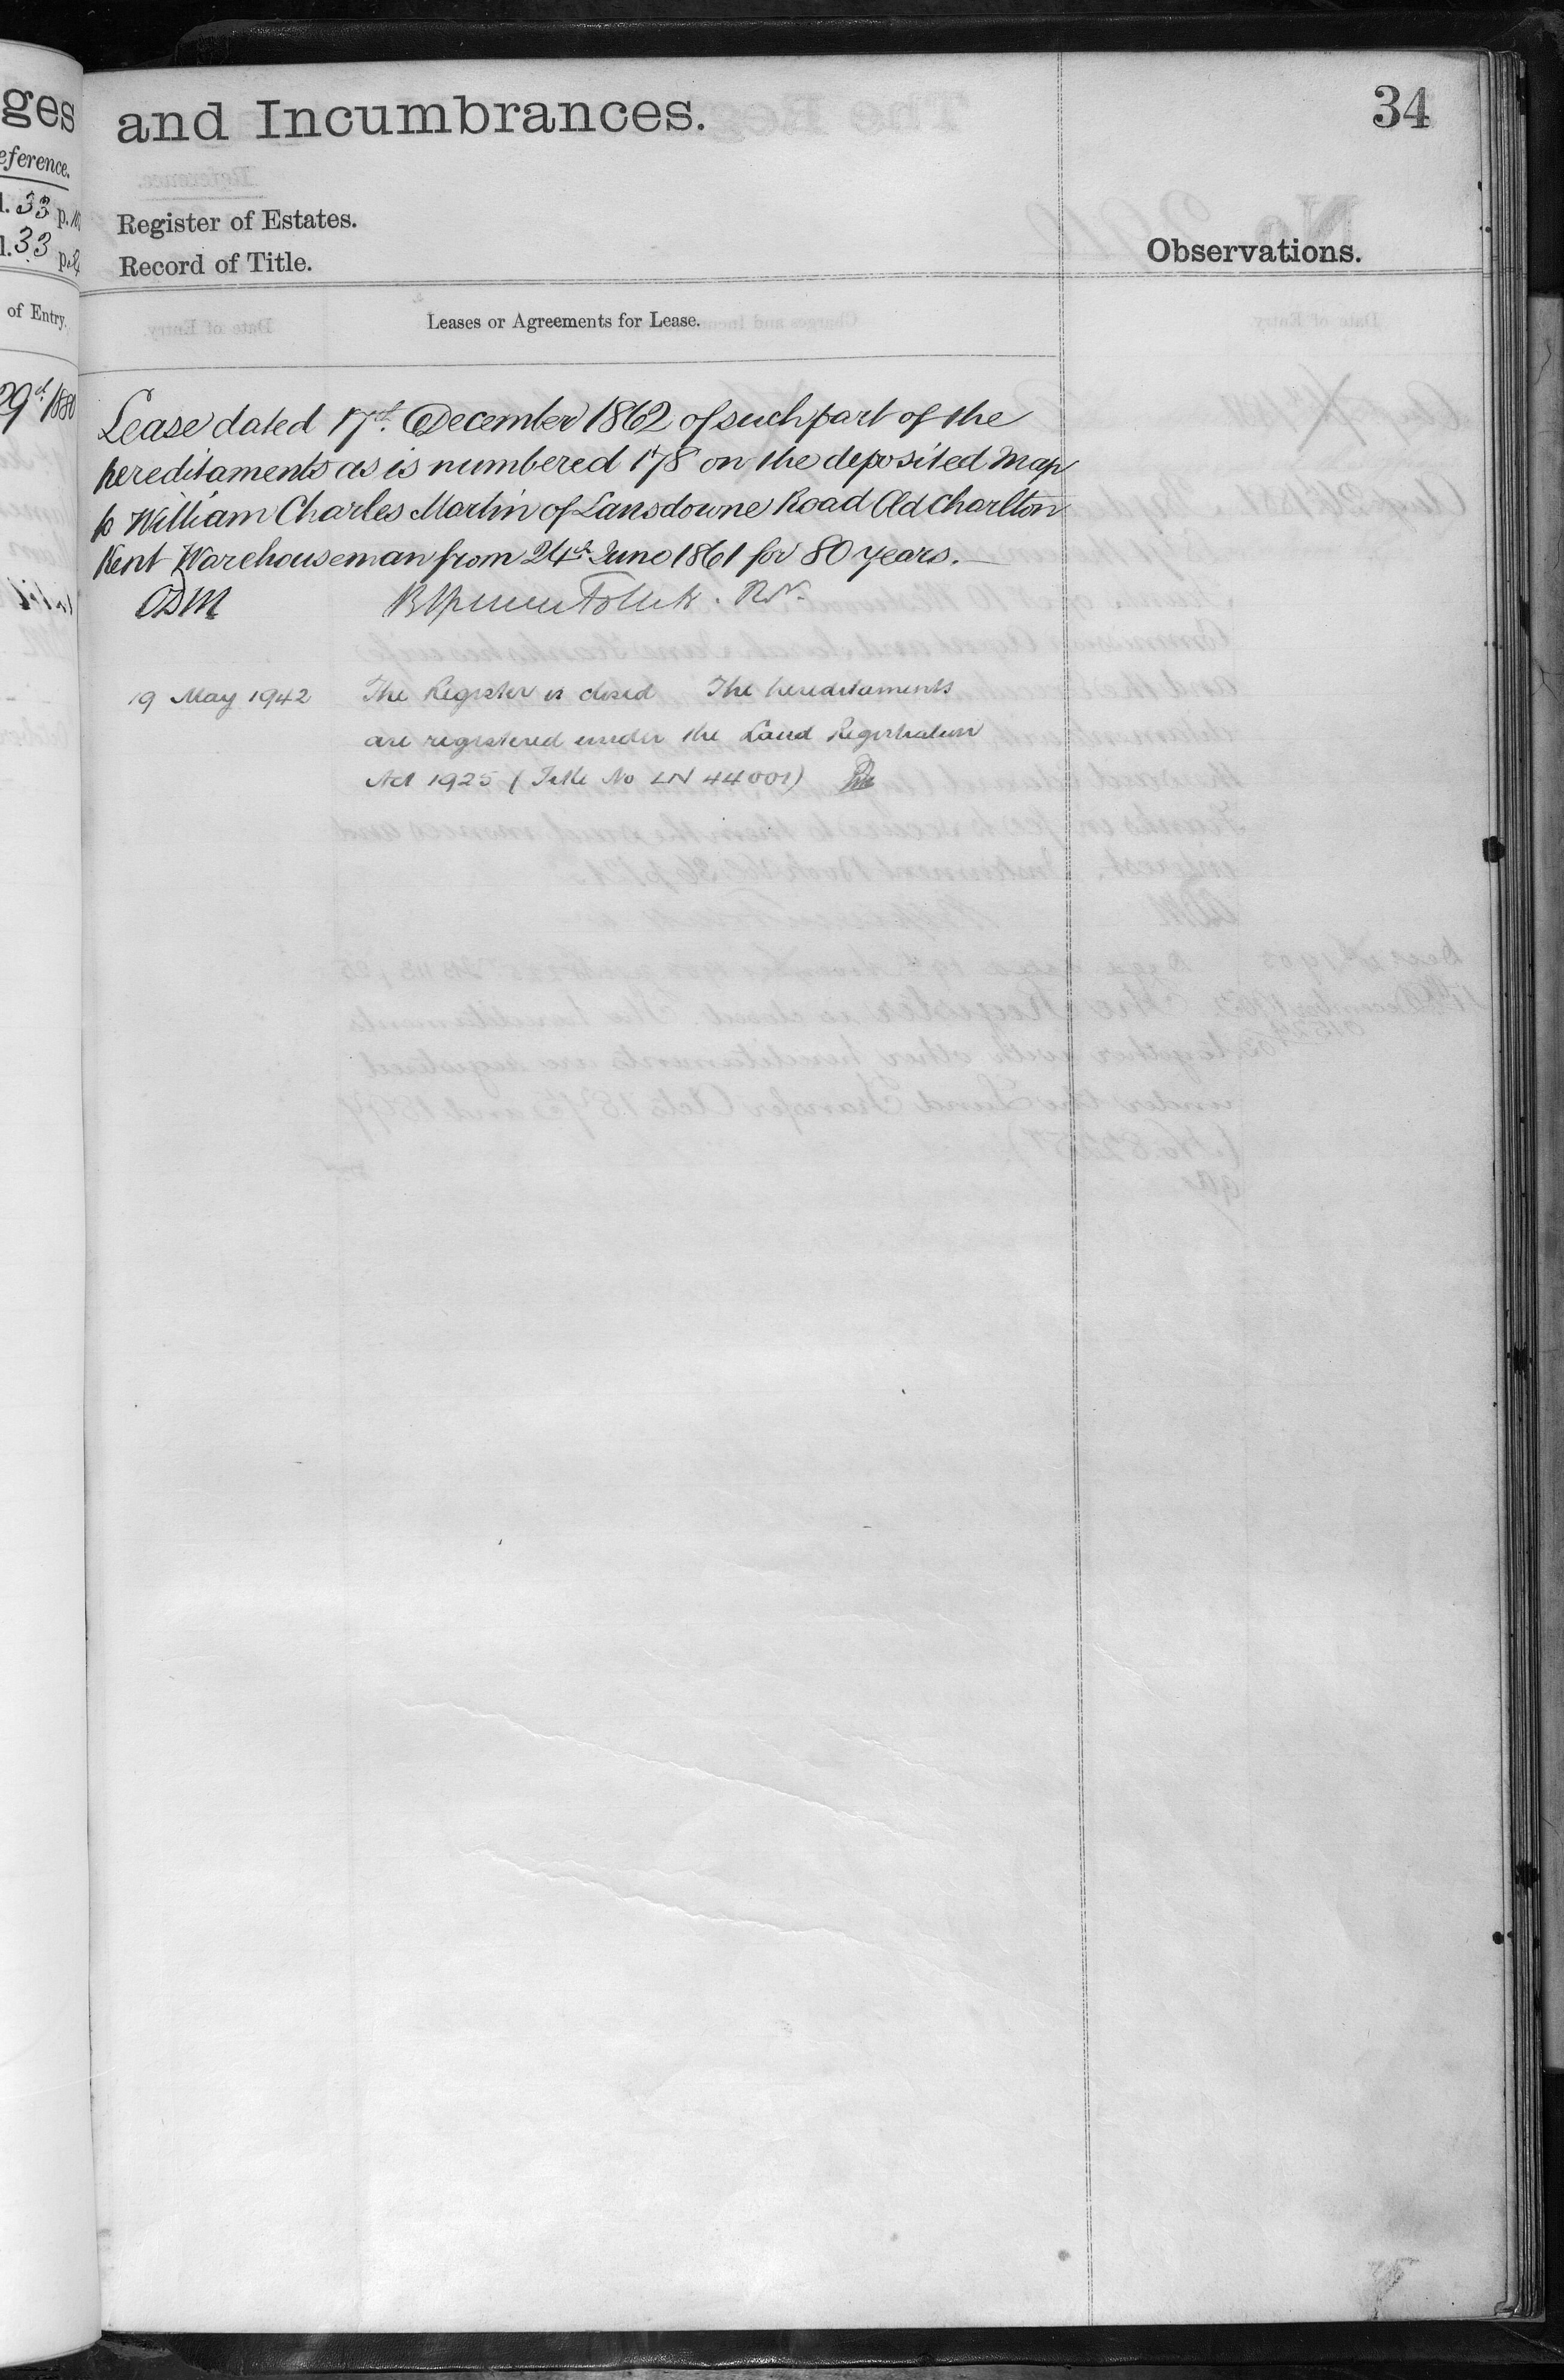 ges
and Incumbrances.
34
eference.
l. 33 p.
l. 33 p.
Register of Estates.
Record of Title.
Observations.
of Entry.
Leases or Agreements for Lease.
29th 1880
Lease dated 17th. December 1862 of such part of the
hereditaments as is numbered 178 on the deposited Map
to William Charles Martin of Lansdowne Road Old Charlton
Kent Warehouseman from 24th June 1861 for 80 years.—
19 May 1942 The Register is closed The hereditaments
are registered under the Land Registration
Act 1925 (Title No LN 44001)